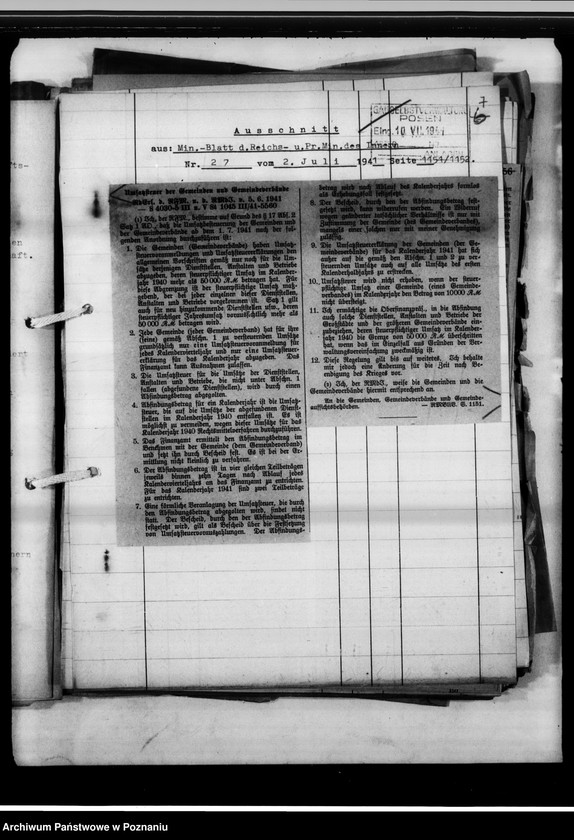 7
6
Ausschnitt
GAUSELBSTVERWALTUNG
POSEN
Eing. 10. VII. 1941
aus: Min.-Blatt d.Reichs- u.Pr.Min.des Innern
Nr. 27 vom 2. Juli 1941 Seite 1151/1152.
Umsatzsteuer der Gemeinden und Gemeindeverbände
RdErl. d. RFM. u. d. RMdI. v. 5. 6. 1941
(1) Ich, der RFM., bestimme auf Grund des § 17 Abs. 2
daß die Umsatzsteuer der Gemeinden und
der Gemeindeverbände ab dem 1. 7. 1941 nach der fol-
genden Anordnung durchzuführen ist:
1. Die Gemeinden (Gemeindeverbände) haben Umsatz-
steuervoranmeldungen und Umsatzsteuererklärungen den
allgemeinen Vorschriften gemäß nur noch für die Um-
sätze derjenigen Dienststellen, Anstalten und Betriebe
abzugeben, deren steuerpflichtiger Umsatz im Kalender-
jahr 1940 mehr als 50 000 RM betragen hat. Für
diese Abgrenzung ist der steuerpflichtige Umsatz maß-
gebend, der bei jeder einzelnen dieser Dienststellen,
Anstalten und Betriebe vorgekommen ist. Satz 1 gilt
auch für neu hinzukommende Dienststellen usw., deren
steuerpflichtiger Jahresumsatz voraussichtlich mehr als
50 000 RM betragen wird.
2. Jede Gemeinde (jeder Gemeindeverband) hat für ihre
(seine) gemäß Abschn. 1 zu versteuernden Umsätze
grundsätzlich nur eine Umsatzsteuervoranmeldung für
jedes Kalendervierteljahr und nur eine Umsatzsteuer-
erklärung für das Kalenderjahr abzugeben. Das
Finanzamt kann Ausnahmen zulassen.
3. Die Umsatzsteuer für die Umsätze der Dienststellen,
Anstalten und Betriebe, die nicht unter Abschn. 1
fallen (abgefundene Dienststellen), wird durch einen
Abfindungsbetrag abgegolten.
4. Abfindungsbetrag für ein Kalenderjahr ist die Umsatz-
steuer, die auf die Umsätze der abgefundenen Dienst-
stellen im Kalenderjahr 1940 entfallen ist. Es ist
möglichst zu vermeiden, wegen dieser Umsätze für das
Kalenderjahr 1940 Rechtsmittelverfahren durchzuführen.
5. Das Finanzamt ermittelt den Abfindungsbetrag im
Benehmen mit der Gemeinde (dem Gemeindeverband)
und setzt ihn durch Bescheid fest. Es ist bei der Er-
mittlung nicht kleinlich zu verfahren.
6. Der Abfindungsbetrag ist in vier gleichen Teilbeträgen
jeweils binnen zehn Tagen nach Ablauf jedes
Kalendervierteljahres an das Finanzamt zu entrichten.
Für das Kalenderjahr 1941 sind zwei Teilbeträge
zu entrichten.
7. Eine förmliche Veranlagung der Umsatzsteuer, die durch
den Abfindungsbetrag abgegolten wird, findet nicht
statt. Der Bescheid, durch den der Abfindungsbetrag
festgesetzt wird, gilt als Bescheid über die Festsetzung
von Umsatzsteuervorauszahlungen. Der Abfindungs-
betrag wird nach Ablauf des Kalenderjahres formlos
8. Der Bescheid, durch den der Abfindungsbetrag fest-
gesetzt wird, kann widerrufen werden. Ein Widerruf
wegen geänderter tatsächlicher Verhältnisse ist nur mit
Zustimmung der Gemeinde (des Gemeindeverbandes),
mangels einer solchen nur mit meiner Genehmigung
zulässig.
9. Die Umsatzsteuererklärung der Gemeinden (der Ge-
meindeverbände) für das Kalenderjahr 1941 hat sich
daher auf die gemäß den Abschn. 1 und 2 zu ver-
steuernden Umsätze auch auf alle Umsätze des ersten
Kalenderhalbjahrs zu erstrecken.
10. Umsatzsteuer wird nicht erhoben, wenn der steuer-
pflichtige Umsatz einer Gemeinde (eines Gemeinde-
verbandes) im Kalenderjahr den Betrag von 10000 RM
nicht übersteigt.
11. Ich ermächtige die Oberfinanzpräs., in die Abfindung
auch solche Dienststellen, Anstalten und Betriebe der
Großstädte und der größeren Gemeindeverbände ein-
zubeziehen, deren steuerpflichtiger Umsatz im Kalender-
jahr 1940 die Grenze von 50000 RM überschritten
hat, wenn das im Einzelfall aus Gründen der Ver-
waltungsvereinfachung zweckmäßig ist.
12. Diese Regelung gilt bis auf weiteres. Ich behalte
mir jedoch eine Änderung für die Zeit nach Be-
endigung des Krieges vor.
(2) Ich, der RMdI., weise die Gemeinden und die
Gemeindeverbände hiermit entsprechend an.
An die Gemeinden, Gemeindeverbände und Gemeinde-
aufsichtsbehörden.
— RMBliV. S. 1151.
Archiwum Państwowe w Poznaniu